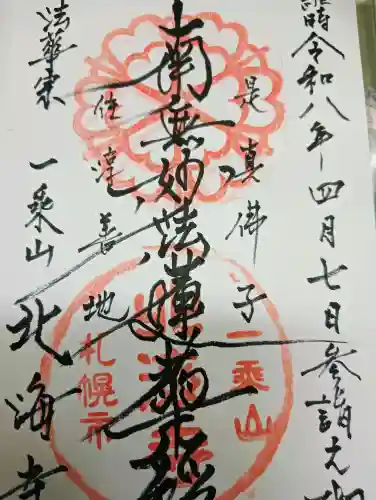 維時令和八年四月七日参詣之砌
是真佛子
南無妙法蓮華経
住淳善地
法華宗
一乗山
北海寺
一乗山
札幌市